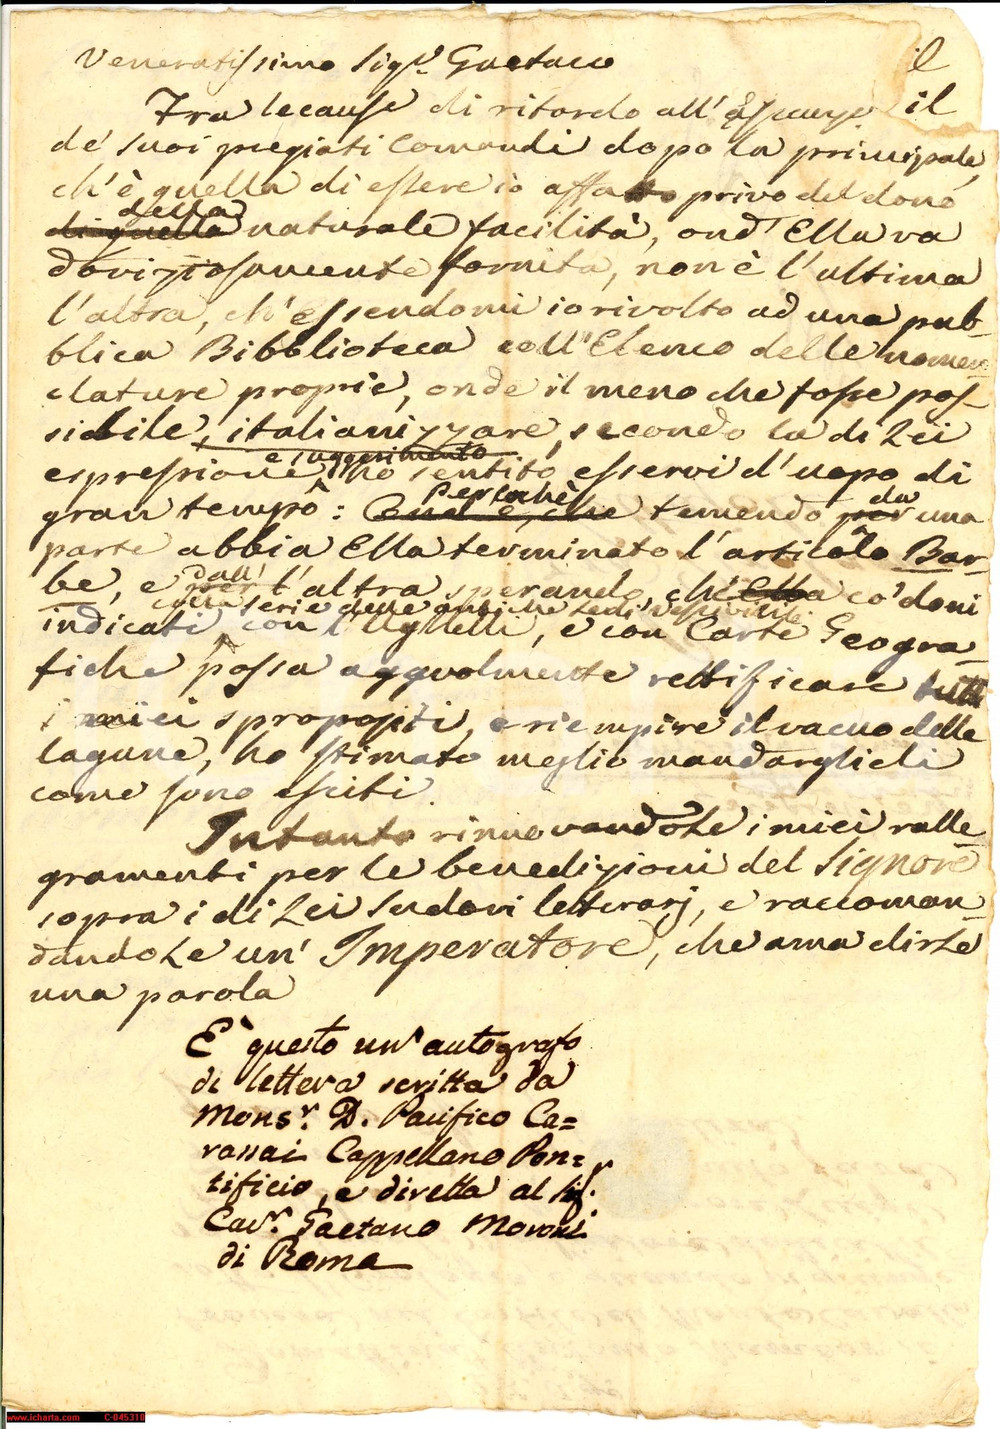 Veneratissimo Sig.r Gaetano
il
Tra le cause di ritardo all' il
de' suoi pregiati comandi dopo la principale,
ch'è quella di essere io affatto privo del dono
della
di quella naturale facilità, ond' Ella va
doviziosamente fornita, non è l'ultima
l'altra, ch'essendomi io rivolto ad una pub-
blica Bibblioteca coll'Elenco delle nomen-
clature proprie, onde il meno che fosse pos-
sibile, italianizzare, secondo la di Lei
e suggerimento
espressione, ho sentito esservi d'uopo di
Perlochè da
gran tempo: Ond'è, che temendo per una
parte abbia Ella terminato l'articolo Bar-
dall'
be, e per l'altra sperando, ch'Ella co' doni
colla serie delle antiche Sedi Vescovili
indicati con l'Ughelli, e con Carte Geogra-
fiche possa aggvolmente rettificare tutti
i miei spropositi, e riempire il vacuo delle
lagune, ho stimato meglio mandarglieli
come sono esciti.
Intanto rinnovandole i miei ralle-
gramenti per le benedizioni del Signore
sopra i di Lei sudori letterarj, e raccoman-
dandole un' Imperatore, che ama dirle
una parola
E' questo un' autografo
di lettera scritta da
Mons.r D. Pacifico Ca=
rassai Cappellano Pon=
tificio, e diretta al Sig.r
Cav.r Gaetano Moroni
di Roma
www.icharta.com C-045310